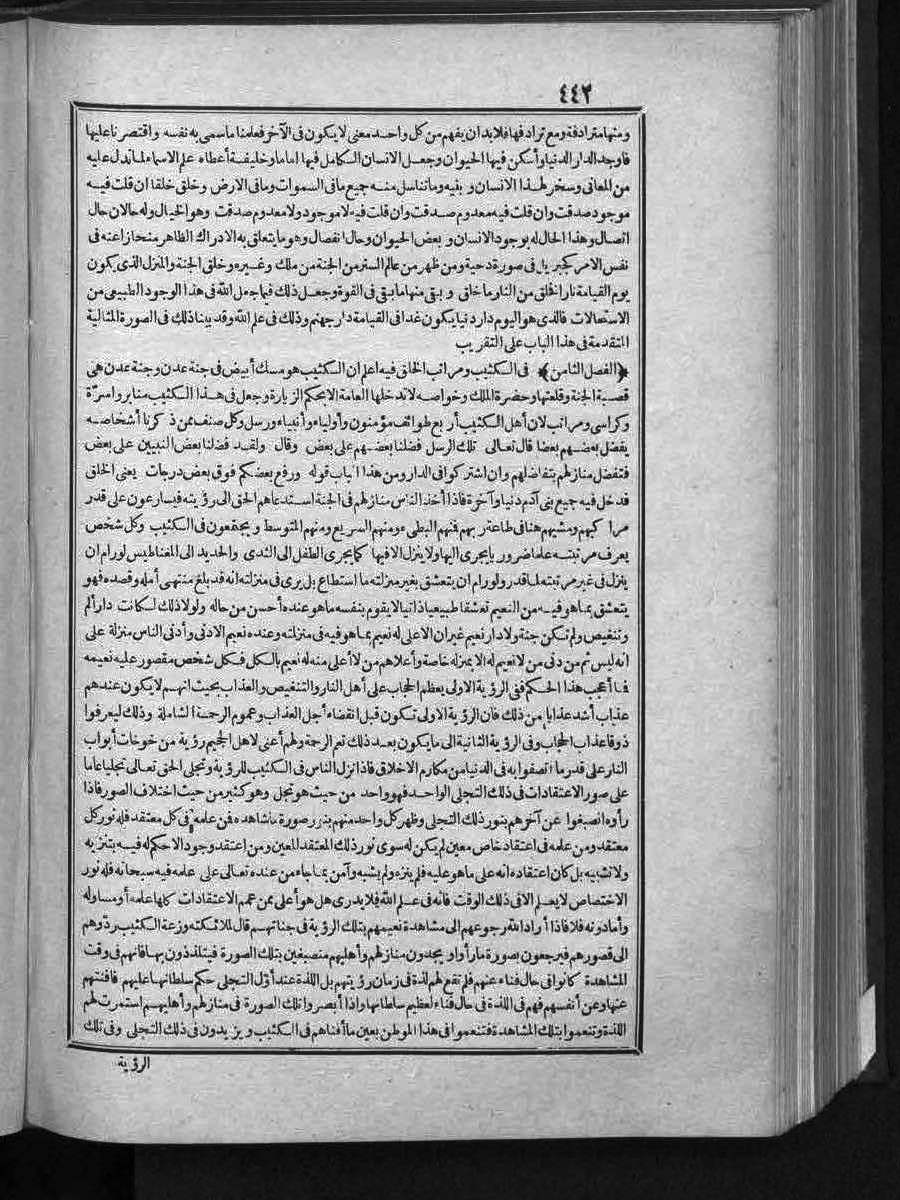 ٤٤٢
ومنها مترادفة ومع ترادفها فلابد ان يفهم من كل واحد معنى لا يكون فى الآخر فعلمنا ما سمى به نفسه واقتصرنا عليها
فاوجد الدار الدنيا وأسكن فيها الحيوان وجعل الانسان الكامل فيها اماما وخليفة أعطاه علم الاسماء لما تدل عليه
من المعانى وسخر لهذا الانسان وبنيه وما تناسل منه جميع ما فى السموات وما فى الارض وخلق خلقا ان قلت فيه
موجود صدقت وان قلت فيه معدوم صدقت وان قلت فيه لا موجود ولا معدوم صدقت وهو الخيال وله حالان حال
اتصال وهذا الحال له بوجود الانسان وبعض الحيوان وحال انفصال وهو ما يتعلق به الادراك الظاهر منحازا عنه فى
نفس الامر كجبريل فى صورة دحية ومن ظهر من عالم الستر من الجنة من ملك وغيره وخلق الجنة والمنزل الذى يكون
يوم القيامة نارا فخلق من النار ما خلق وبقى منها ما بقى فى القوة وجعل ذلك فيما جعل الله فى هذا الوجود الطبيعى من
الاستحالات فالذى هو اليوم دار دنيا يكون غدا فى القيامة دار جهنم وذلك فى علم الله وقد بينا ذلك فى الصورة المثالية
المتقدمة فى هذا الباب على التقريب
﴿الفصل الثامن﴾ فى الكثيب ومراتب الخلق فيه اعلم ان الكثيب هو مسك أبيض فى جنة عدن وجنة عدن هى
قصبة الجنة وقلعتها وحضرة الملك وخواصه لا تدخلها العامة الا بحكم الزيارة وجعل فى هذا الكثيب منابر واسرّة
وكراسى ومراتب لان أهل الكثيب أربع طوائف مؤمنون وأولياء وأنبياء ورسل وكل صنف ممن ذكرنا أشخاصه
يفضل بعضهم بعضا قال تعالى تلك الرسل فضلنا بعضهم على بعض وقال ولقد فضلنا بعض النبيين على بعض
فتفضل منازلهم بتفاضلهم وان اشتركوا فى الدار ومن هذا الباب قوله ورفع بعضكم فوق بعض درجات يعنى الخلق
فدخل فيه جميع بنى آدم دنيا وآخرة فاذا أخذ الناس منازلهم فى الجنة استدعاهم الحق الى رؤيته فيسارعون على قدر
مراكبهم ومشيهم هنا فى طاعة ربهم فمنهم البطىء ومنهم السريع ومنهم المتوسط ويجتمعون فى الكثيب وكل شخص
يعرف مرتبته علما ضروريا يجرى اليها ولا ينزل الا فيها كما يجرى الطفل الى الثدى والحديد الى المغناطيس لو رام ان
ينزل فى غير مرتبته لما قدر ولو رام ان يتعشق بغير منزلته ما استطاع بل يرى فى منزلته انه قد بلغ منتهى أمله وقصده فهو
يتعشق بما هو فيه من النعيم تعشقا طبيعيا ذاتيا لا يقوم بنفسه ما هو عنده أحسن من حاله ولولا ذلك لكانت دار ألم
وتنغيص ولم تكن جنة ولا دار نعيم غير ان الاعلى له نعيم بما هو فيه فى منزلته وعنده نعيم الادنى وأدنى الناس منزلة على
انه ليس ثم من دنى من لا نعيم له الا بمنزله خاصة وأعلاهم من لا أعلى منه له نعيم بالكل فكل شخص مقصور عليه نعيمه
فما أعجب هذا الحكم ففى الرؤية الاولى يعظم الحجاب على أهل النار والتنغيص والعذاب بحيث انهم لا يكون عندهم
عذاب أشد عذابا من ذلك فان الرؤية الاولى تكون قبل انقضاء أجل العذاب وعموم الرحمة الشاملة وذلك ليعرفوا
ذوقا عذاب الحجاب وفى الرؤية الثانية الى ما يكون بعد ذلك تعم الرحمة ولهم أعنى لاهل الجحيم رؤية من خوخات أبواب
النار على قدر ما اتصفوا به فى الدنيا من مكارم الاخلاق فاذا نزل الناس فى الكثيب للرؤية وتجلى الحق تعالى تجليا عاما
على صور الاعتقادات فى ذلك التجلى الواحد فهو واحد من حيث هو تجل وهو كثير من حيث اختلاف الصور فاذا
رأوه انصبغوا عن آخرهم بنور ذلك التجلى وظهر كل واحد منهم بنور صورة ما شاهده فمن علمه فى كل معتقد فله نور كل
معتقد ومن علمه فى اعتقاد خاص معين لم يكن له سوى نور ذلك المعتقد المعين ومن اعتقد وجودا لا حكم له فيه بتنزيه
ولا تشبيه بل كان اعتقاده انه على ما هو عليه فلم ينزه ولم يشبه وآمن بما جاء من عنده تعالى على علمه فيه سبحانه فله نور
الاختصاص لا يعلم الا فى ذلك الوقت فانه فى علم الله فلا يدرى هل هو أعلى ممن عمم الاعتقادات كلها علمه أو مساو له
وأما دونه فلا فاذا أراد الله رجوعهم الى مشاهدة نعيمهم بتلك الرؤية فى جناتهم قال لملائكته وزعة الكثيب ردّوهم
الى قصورهم فيرجعون بصورة ما رأوا ويجدون منازلهم وأهليهم منصبغين بتلك الصورة فيتلذذون بها فانهم فى وقت
المشاهدة كانوا فى حال فناء عنهم فلم تقع لهم لذة فى زمان رؤيتهم بل اللذة عند أوّل التجلى حكم سلطانها عليهم فافنتهم
عنها وعن أنفسهم فهم فى اللذة فى حال فناء لعظيم سلطانها واذا أبصروا تلك الصورة فى منازلهم وأهليهم استمرت لهم
اللذة وتنعموا بتلك المشاهدة فتنعموا فى هذا الموطن بعين ما أفناهم فى الكثيب ويزيدون فى ذلك التجلى وفى تلك
الرؤية